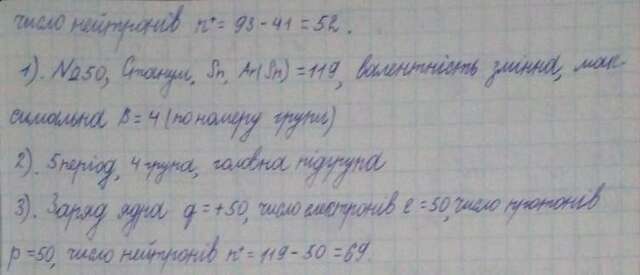 число нейтронів n° = 93 - 41 = 52.
1). №50, Станум, Sn, Ar(Sn) = 119, валентність змінна, мак-
симальна В = 4 (по номеру групи)
2). 5 період, 4 група, головна підгрупа
3). Заряд ядра q = +50, число електронів e = 50, число протонів
p = 50, число нейтронів n° = 119 - 50 = 69.